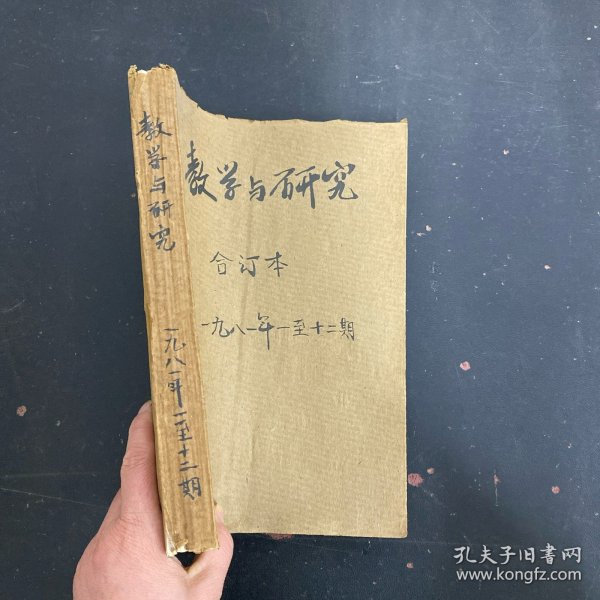 教学与研究
一九八一年一至十二期
教学与研究
合订本
一九八一年一至十二期
孔夫子旧书网
www.kongfz.com